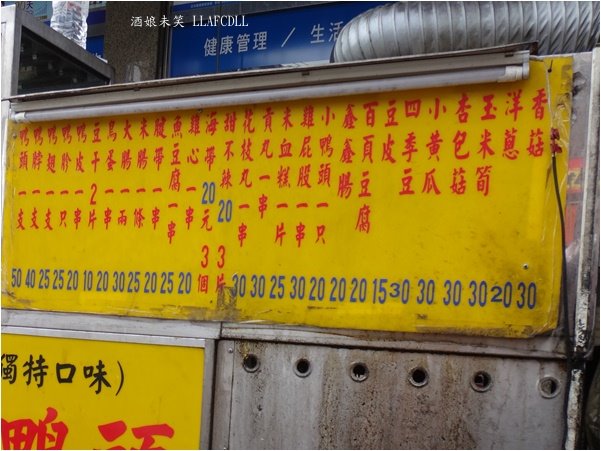 酒娘未笑 LLAFCDLL
健康管理 / 生活
鴨頭一支 50
鴨脖一支 40
鴨翅一支 25
鴨胗一只 25
鴨皮一串 20
豆干2片 10
鳥蛋一串 20
大腸一兩 30
米腸一條 25
腱帶一串 20
魚豆腐一串 25
雞心一串 20
海帶20元3個
甜不辣20 3片
花枝丸一串 30
貢丸一串 30
米血糕一片 25
雞屁股一串 30
小鴨頭一只 20
鑫鑫腸 20
百頁豆腐 20
豆皮 15
四季豆 30
小黃瓜 30
杏包菇 30
玉米筍 30
洋蔥 20
香菇 30
獨特口味)
鴨頭